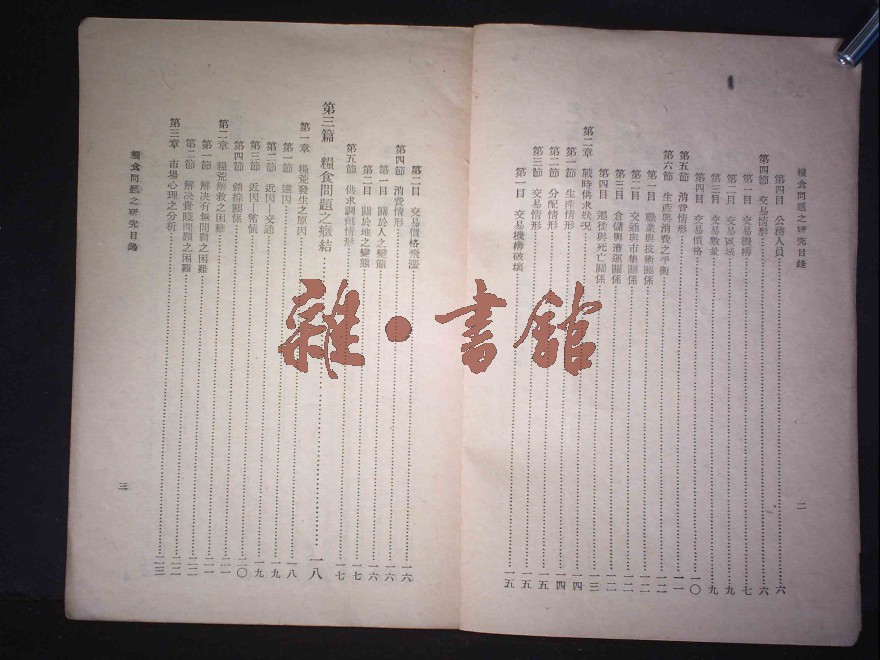 糧食問題之研究目錄
二
第四目 公務人員……六
第四節 交易情形……六
第一目 交易機構……七
第二目 交易區域……九
第三目 交易數量……九
第四目 交易價格……一〇
第五節 消費情形……一一
第六節 生產與消費之平衡……一二
第一目 職業與技術關係……一二
第二目 交通與市集關係……一二
第三目 倉儲與漕運關係……一二
第四目 遷徙與死亡關係……一三
第二章 戰時供求狀況……一四
第一節 生產情形……一四
第二節 分配情形……一四
第三節 交易情形……一五
第一目 交易機構破壞……一五
第二目 交易價格飛漲……一六
第四節 消費情形……一六
第一目 關於人之變態……一六
第二目 關於地之變態……一七
第五節 供求調劑情形……一七
第三篇 糧食問題之癥結……一八
第一章 糧荒發生之原因……一八
第一節 遠因……一八
第二節 近因—交通……一九
第三節 近因—幣值……一九
第四節 錯綜關係……二〇
第二章 糧荒解救之困難……二一
第一節 解決有無問題之困難……二一
第二節 解決貴賤問題之困難……二二
第三章 市場心理之分析……二三
糧食問題之研究目錄
三
雜·書館